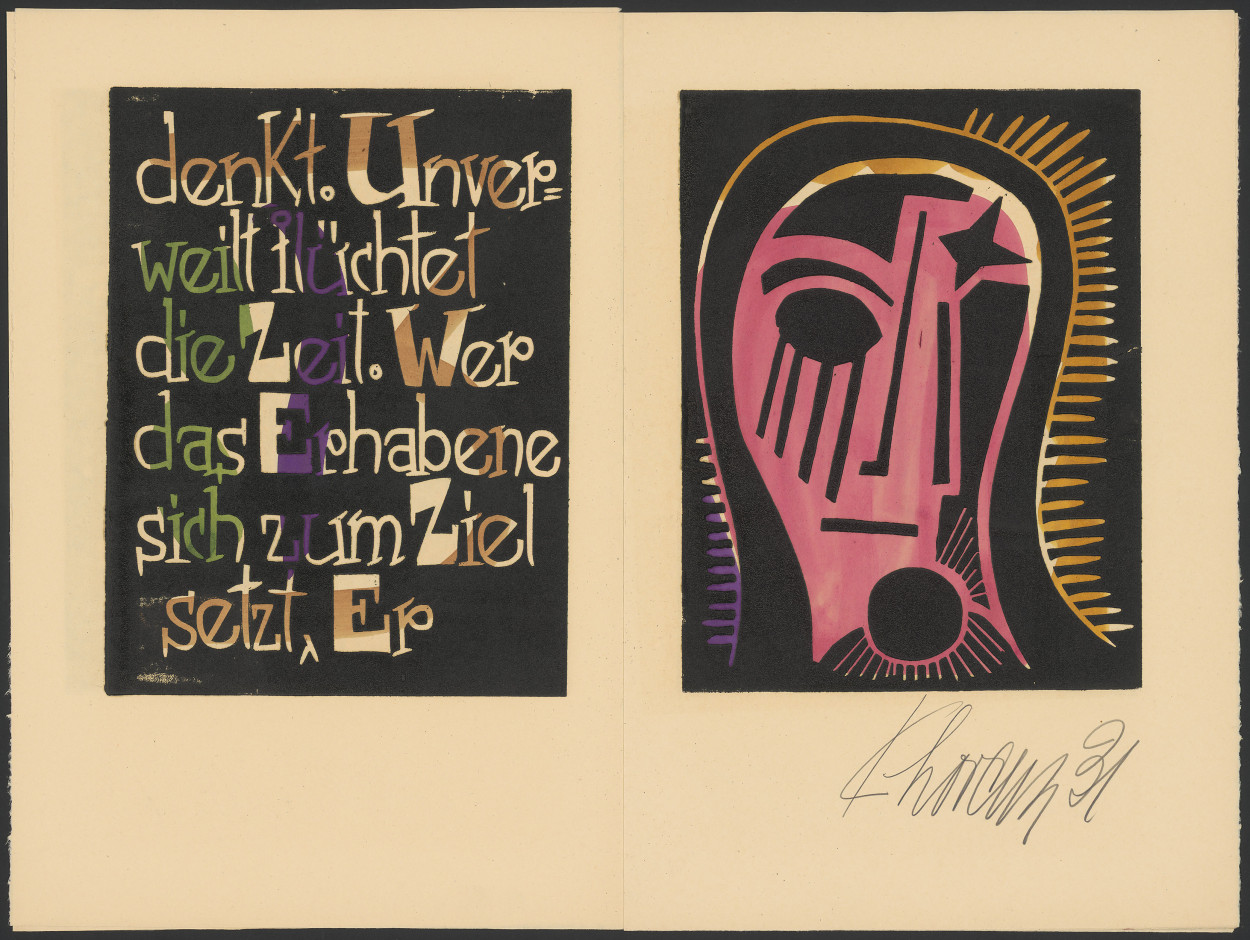 denkt. Unver=
weilt flüchtet
die Zeit. Wer
das Erhabene
sich zum Ziel
setzt, Er
KLorenz 31